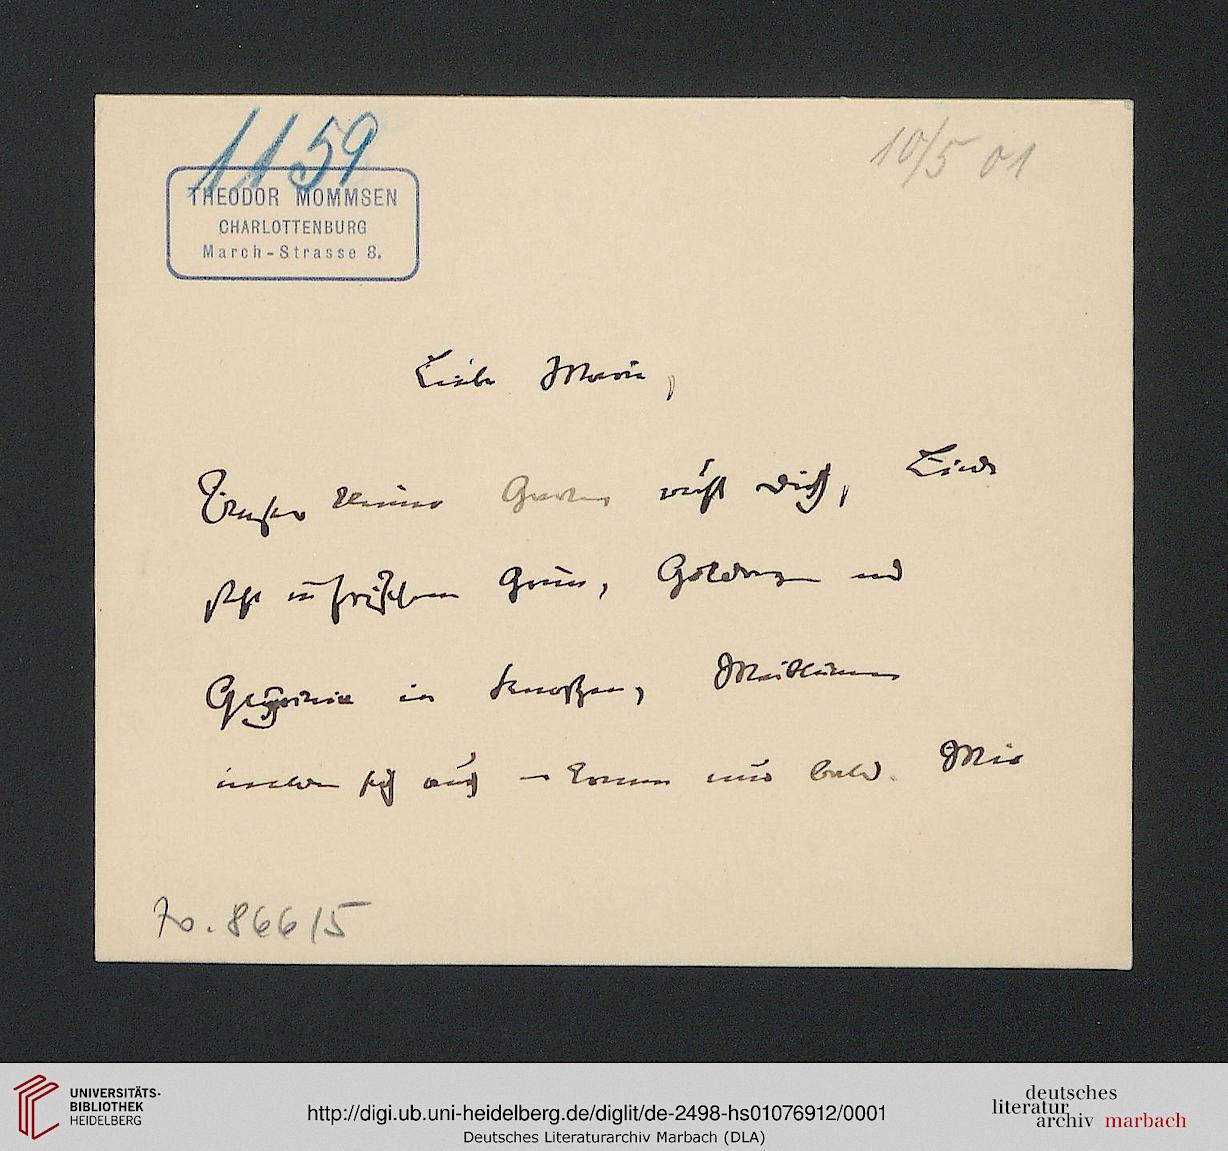 1159
10/5 01
THEODOR MOMMSEN
CHARLOTTENBURG
March-Strasse 8.
Liebe Marie,
Unser kleiner Garten ruft Dich, Linde
steht in frischem Grün, Goldregen und
Glycinie in Knospen, Maiblumen
melden sich auch — komm nur bald. Mir
70.866/5
UNIVERSITÄTS-
BIBLIOTHEK
HEIDELBERG
http://digi.ub.uni-heidelberg.de/diglit/de-2498-hs01076912/0001
Deutsches Literaturarchiv Marbach (DLA)
deutsches
literatur
archiv marbach